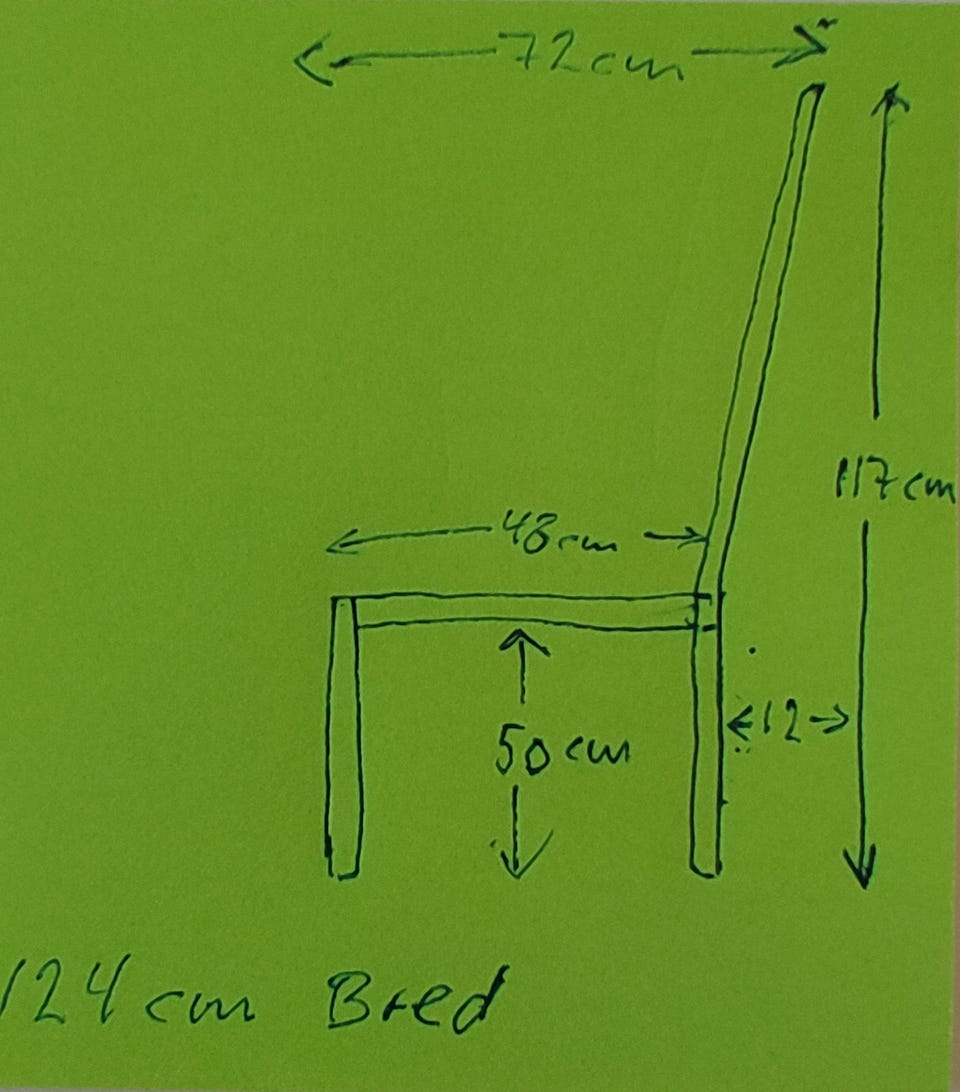 72cm
48cm
117cm
12
50cm
124cm Bred